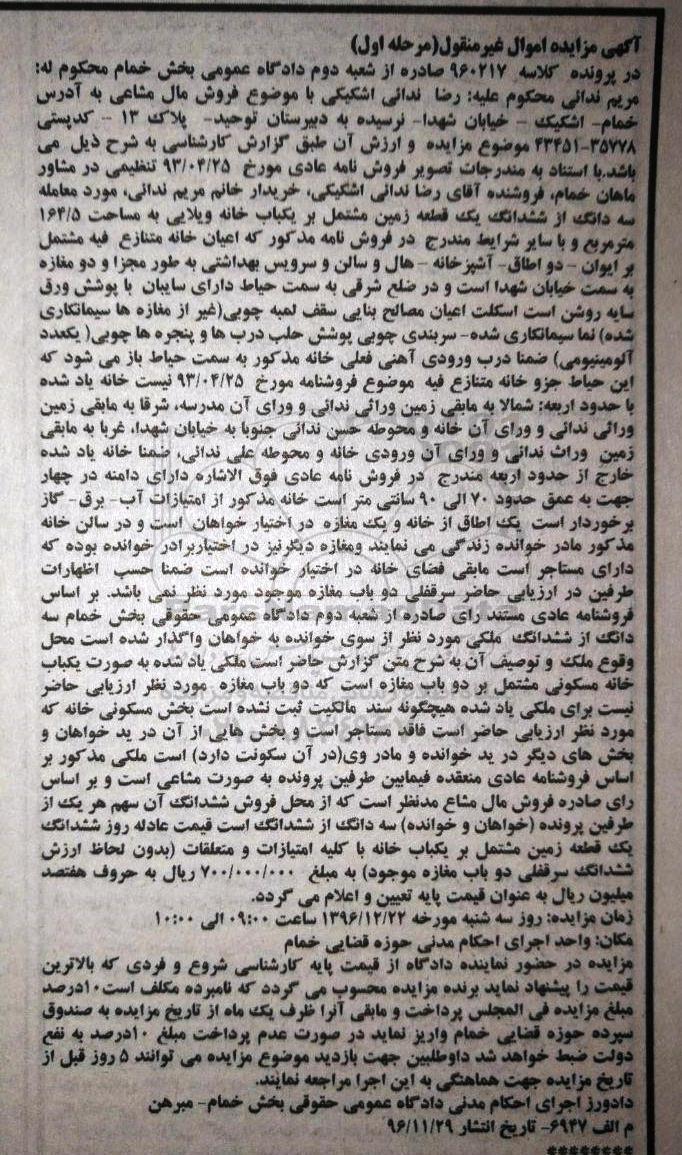 آگهی مزایده اموال غیرمنقول(مرحله اول)
در پرونده کلاسه ۹۶۰۲۱۷ صادره از شعبه دوم دادگاه عمومی بخش خمام محکوم له:
مریم ندائی محکوم علیه: رضا ندائی اشکیکی با موضوع فروش مال مشاعی به آدرس
خمام- اشکیک - خیابان شهدا- نرسیده به دبیرستان توحید- پلاک ۱۳ - کدپستی
۳۵۷۷۸-۴۳۴۵۱ موضوع مزایده و ارزش آن طبق گزارش کارشناسی به شرح ذیل می
باشد.با استناد به مندرجات تصویر فروش نامه عادی مورخ ۹۳/۰۴/۲۵ تنظیمی در مشاور
ماهان خمام، فروشنده آقای رضا ندائی اشکیکی، خریدار خانم مریم ندائی، مورد معامله
سه دانگ از ششدانگ یک قطعه زمین مشتمل بر یکباب خانه ویلایی به مساحت ۱۶۴/۵
مترمربع و با سایر شرایط مندرج در فروش نامه مذکور که اعیان خانه متنازع فیه مشتمل
بر ایوان - دو اطاق- آشپزخانه - هال و سالن و سرویس بهداشتی به طور مجزا و دو مغازه
به سمت خیابان شهدا است و در ضلع شرقی به سمت حیاط دارای سایبان با پوشش ورق
سایه روشن است اسکلت اعیان مصالح بنایی سقف لمبه چوبی(غیر از مغازه ها سیمانکاری
شده) نما سیمانکاری شده- سربندی چوبی پوشش حلب درب ها و پنجره ها چوبی( یکعدد
آلومینیومی) ضمنا درب ورودی آهنی فعلی خانه مذکور به سمت حیاط باز می شود که
این حیاط جزو خانه متنازع فیه موضوع فروشنامه مورخ ۹۳/۰۴/۲۵ نیست خانه یاد شده
با حدود اربعه: شمالا به مابقی زمین وراثی ندائی و ورای آن مدرسه، شرقا به مابقی زمین
وراثی ندائی و ورای آن خانه و محوطه حسن ندائی جنوبا به خیابان شهدا، غربا به مابقی
زمین وراث ندائی و ورای آن ورودی خانه و محوطه علی ندائی، ضمنا خانه یاد شده
خارج از حدود اربعه مندرج در فروش نامه عادی فوق الاشاره دارای دامنه در چهار
جهت به عمق حدود ۷۰ الی ۹۰ سانتی متر است خانه مذکور از امتیازات آب- برق- گاز
برخوردار است یک اطاق از خانه و یک مغازه در اختیار خواهان است و در سالن خانه
مذکور مادر خوانده زندگی می نمایند ومغازه دیگرنیز در اختیاربرادر خوانده بوده که
دارای مستاجر است مابقی فضای خانه در اختیار خوانده است ضمنا حسب اظهارات
طرفین در ارزیابی حاضر سرقفلی دو باب مغازه موجود مورد نظر نمی باشد. بر اساس
فروشنامه عادی مستند رای صادره از شعبه دوم دادگاه عمومی حقوقی بخش خمام سه
دانگ از ششدانگ ملکی مورد نظر از سوی خوانده به خواهان واگذار شده است محل
وقوع ملک و توصیف آن به شرح متن گزارش حاضر است ملکی یاد شده به صورت یکباب
خانه مسکونی مشتمل بر دو باب مغازه است که دو باب مغازه مورد نظر ارزیابی حاضر
نیست برای ملکی یاد شده هیچگونه سند مالکیت ثبت نشده است بخش مسکونی خانه که
مورد نظر ارزیابی حاضر است فاقد مستاجر است و بخش هایی از آن در ید خواهان و
بخش های دیگر در ید خوانده و مادر وی(در آن سکونت دارد) است ملکی مذکور بر
اساس فروشنامه عادی منعقده فیمابین طرفین پرونده به صورت مشاعی است و بر اساس
رای صادره فروش مال مشاع مدنظر است که از محل فروش ششدانگ آن سهم هر یک از
طرفین پرونده (خواهان و خوانده) سه دانگ از ششدانگ است قیمت عادله روز ششدانگ
یک قطعه زمین مشتمل بر یکباب خانه با کلیه امتیازات و متعلقات (بدون لحاظ ارزش
ششدانگ سرقفلی دو باب مغازه موجود) به مبلغ ۷۰۰/۰۰۰/۰۰۰ ریال به حروف هفتصد
میلیون ریال به عنوان قیمت پایه تعیین و اعلام می گردد.
زمان مزایده: روز سه شنبه مورخه ۱۳۹۶/۱۲/۲۲ ساعت ۰۹:۰۰ الی ۱۰:۰۰
مکان: واحد اجرای احکام مدنی حوزه قضایی خمام
مزایده در حضور نماینده دادگاه از قیمت پایه کارشناسی شروع و فردی که بالاترین
قیمت را پیشنهاد نماید برنده مزایده محسوب می گردد که نامبرده مکلف است۱۰درصد
مبلغ مزایده فی المجلس پرداخت و مابقی آنرا ظرف یک ماه از تاریخ مزایده به صندوق
سپرده حوزه قضایی خمام واریز نماید در صورت عدم پرداخت مبلغ ۱۰درصد به نفع
دولت ضبط خواهد شد داوطلبین جهت بازدید موضوع مزایده می توانند ۵ روز قبل از
تاریخ مزایده جهت هماهنگی به این اجرا مراجعه نمایند.
دادورز اجرای احکام مدنی دادگاه عمومی حقوقی بخش خمام- مبرهن
م الف ۶۹۴۷- تاریخ انتشار ۹۶/۱۱/۲۹
********